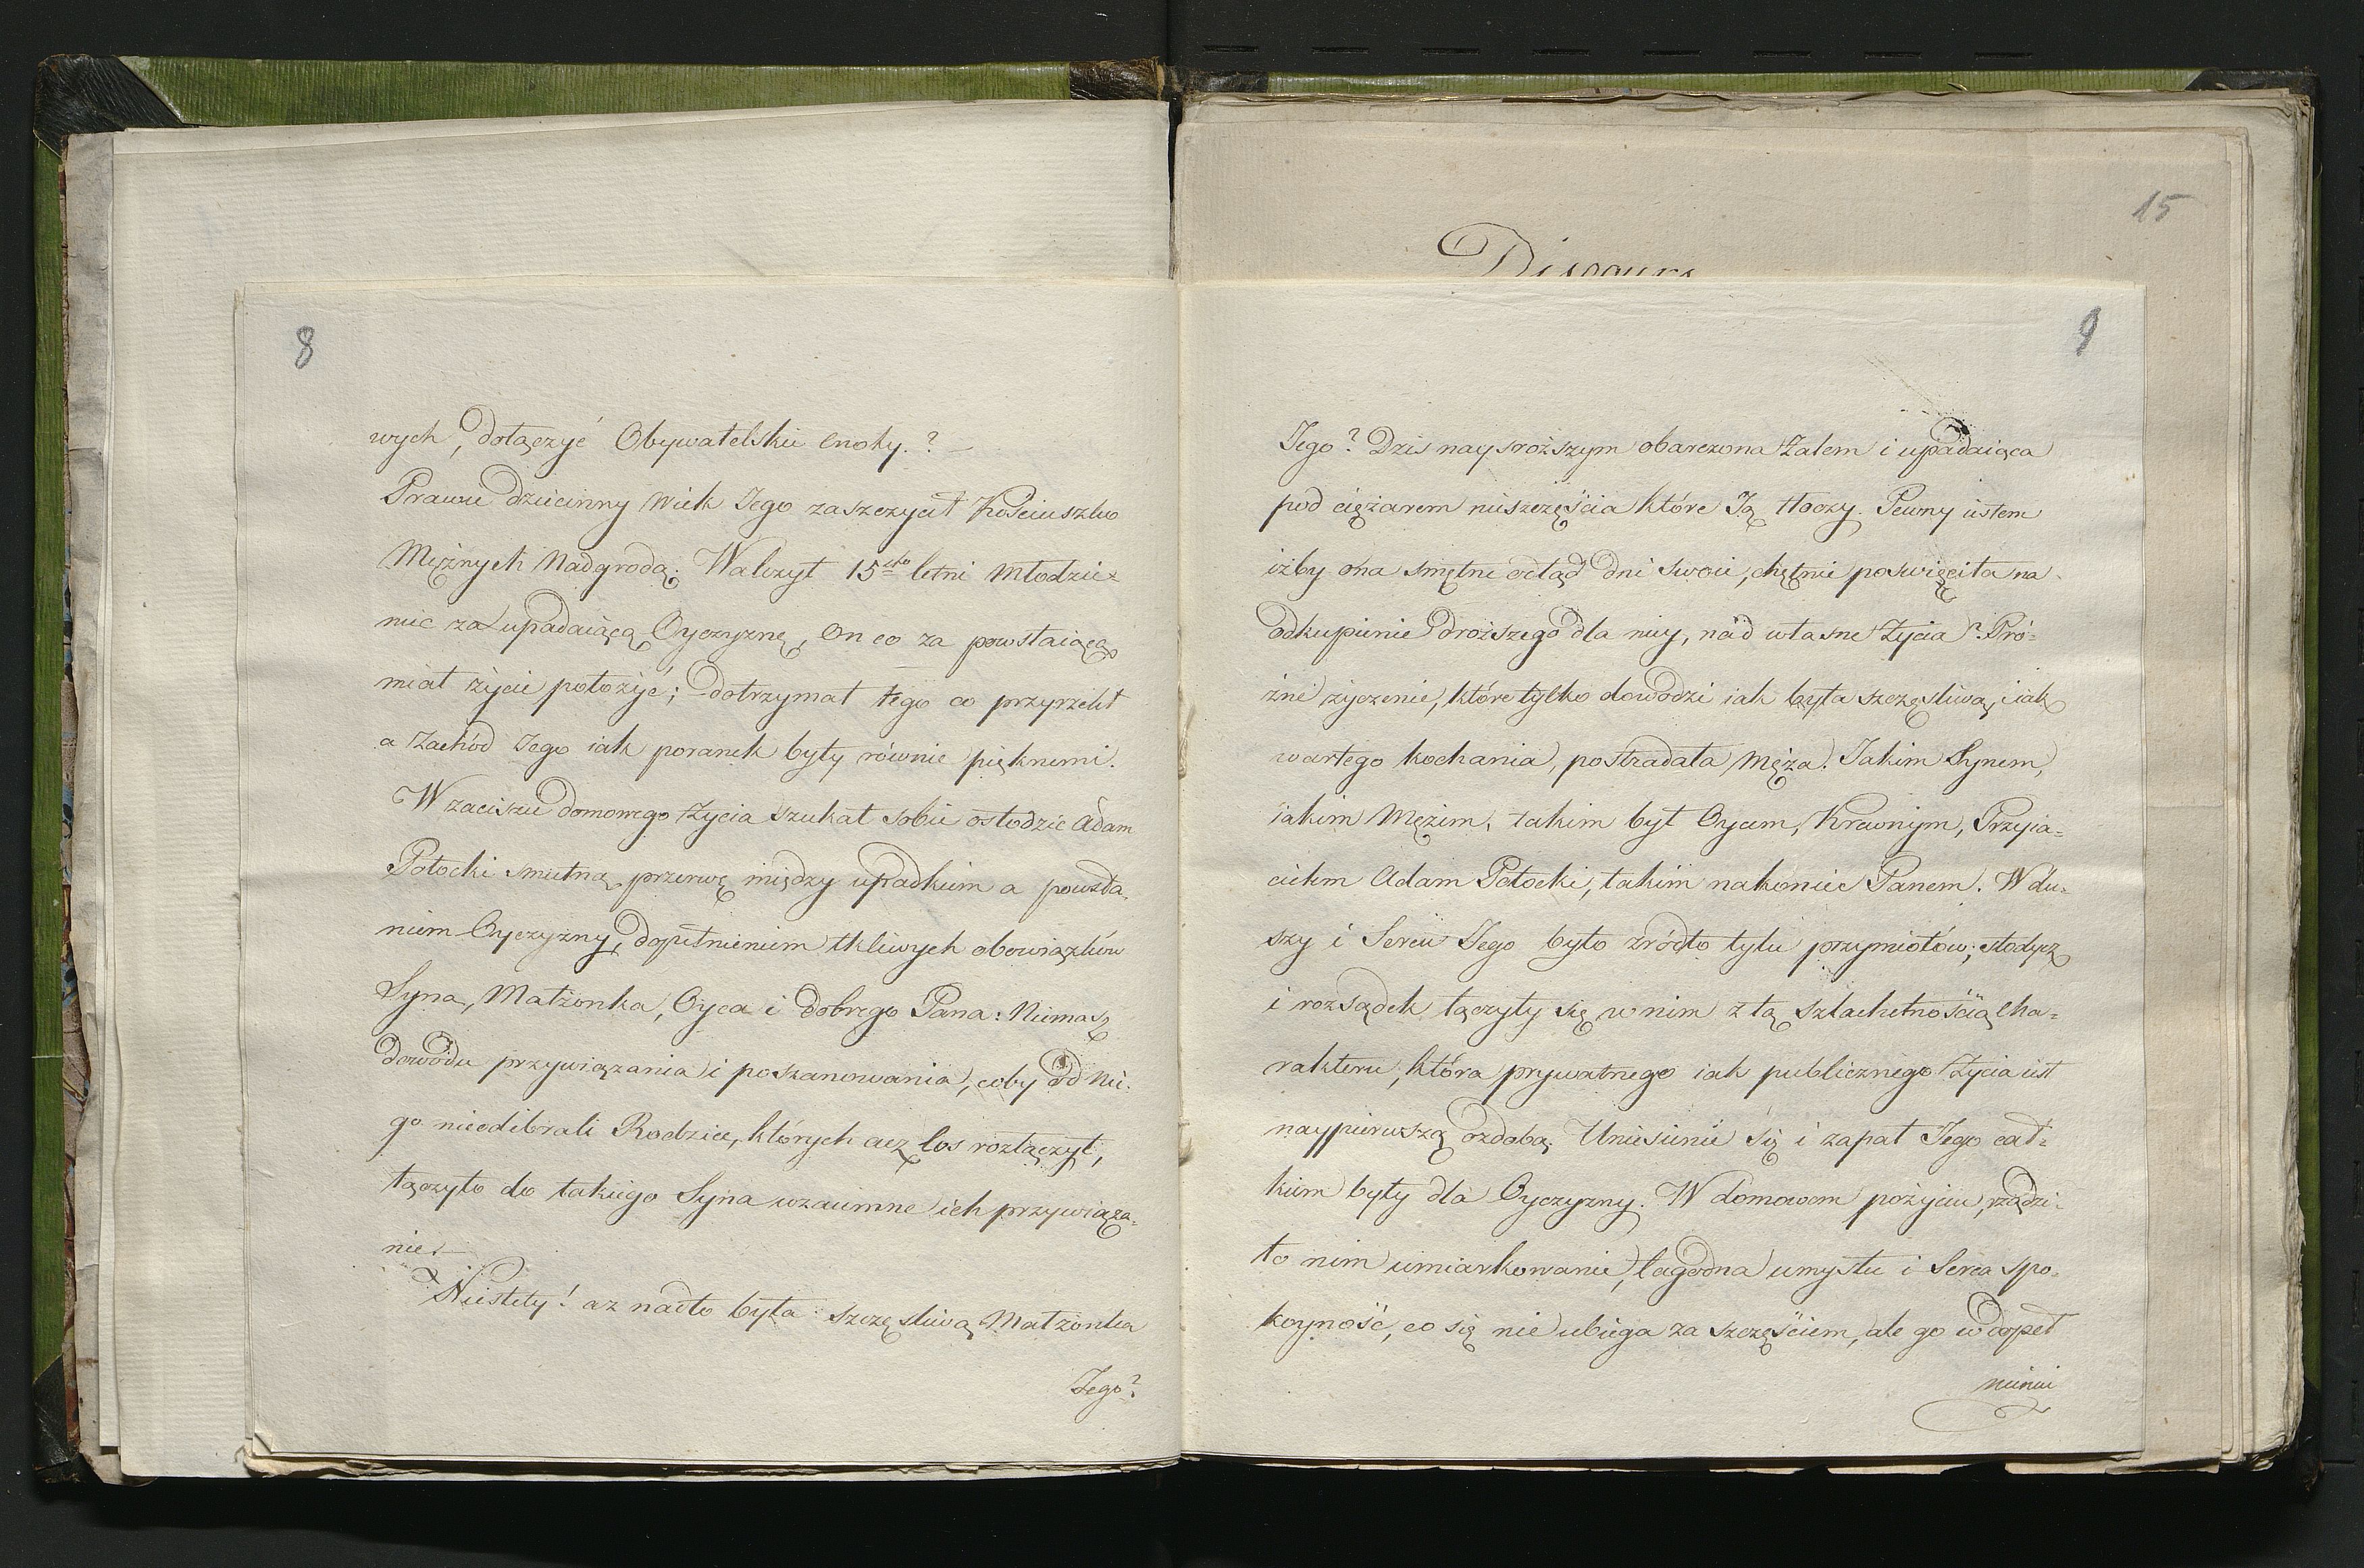 8
wych, dołączyć Obywatelskie cnoty.? –
Prawie dziecinny Wiek Jego zaszczycił Kościuszko
Mężnych Nadgrodą. Walczył 15sto letni Młodzie=
niec za upadaiącą Oyczyznę, On co za powstaiącą
miał życie położyć; dotrzymał tego co przyrzekł
a Zachód Jego iak poranek były równie pięknemi.
W zaciszu domowego życia szukał sobie osłodzić Adam
Potocki smutną przerwę między upadkiem a powsta-
niem Oyczyzny, dopełnieniem tkliwych obowiązków
Syna, Małżonka, Oyca i dobrego Pana: Niemasz
dowodu przywiązania i poszanowania, coby od Nie-
go nieodebrali Rodzice, których acz los rozłączył,
łączyło do takiego Syna wzaiemne ich przywiąza-
nie. –
Niestety! aż nadto była szczęśliwą Małżonka
Jego?
15
Discours
9
Jego? Dziś naysroższym obarczona żalem i upadaiąca
pod ciężarem nieszczęścia które Ją tłoczy. Pewny iestem
iżby ona smętne odtąd dni swoie, chętnie poswięciła na
odkupienie droższego dla niey, nad własne życia? Pró=
żne życzenie, które tylko dowodzi iak była szczęśliwą, i iak
wartego kochania, postradała Męża. Jakim Synem,
iakim Mężem, takim był Oycem, Krewnym, Przyia=
cielem Adam Potocki, takim nakoniec Panem. W du=
szy i Sercu Jego było zródło tylu przymiotów; słodycz
i rozsądek łączyły się w nim z tą szlachetnością cha=
rakteru, która prywatnego iak publicznego życia iest
naypierwszą ozdobą. Uniesienie się i zapał Jego cał=
kiem były dla Oyczyzny. W domowem pożyciu, rządzi-
ło nim umiarkowanie, łagodna umysłu i Serca spo-
koyność, co się nie ubiega za szczęściem, ale go w dopeł
nieniu